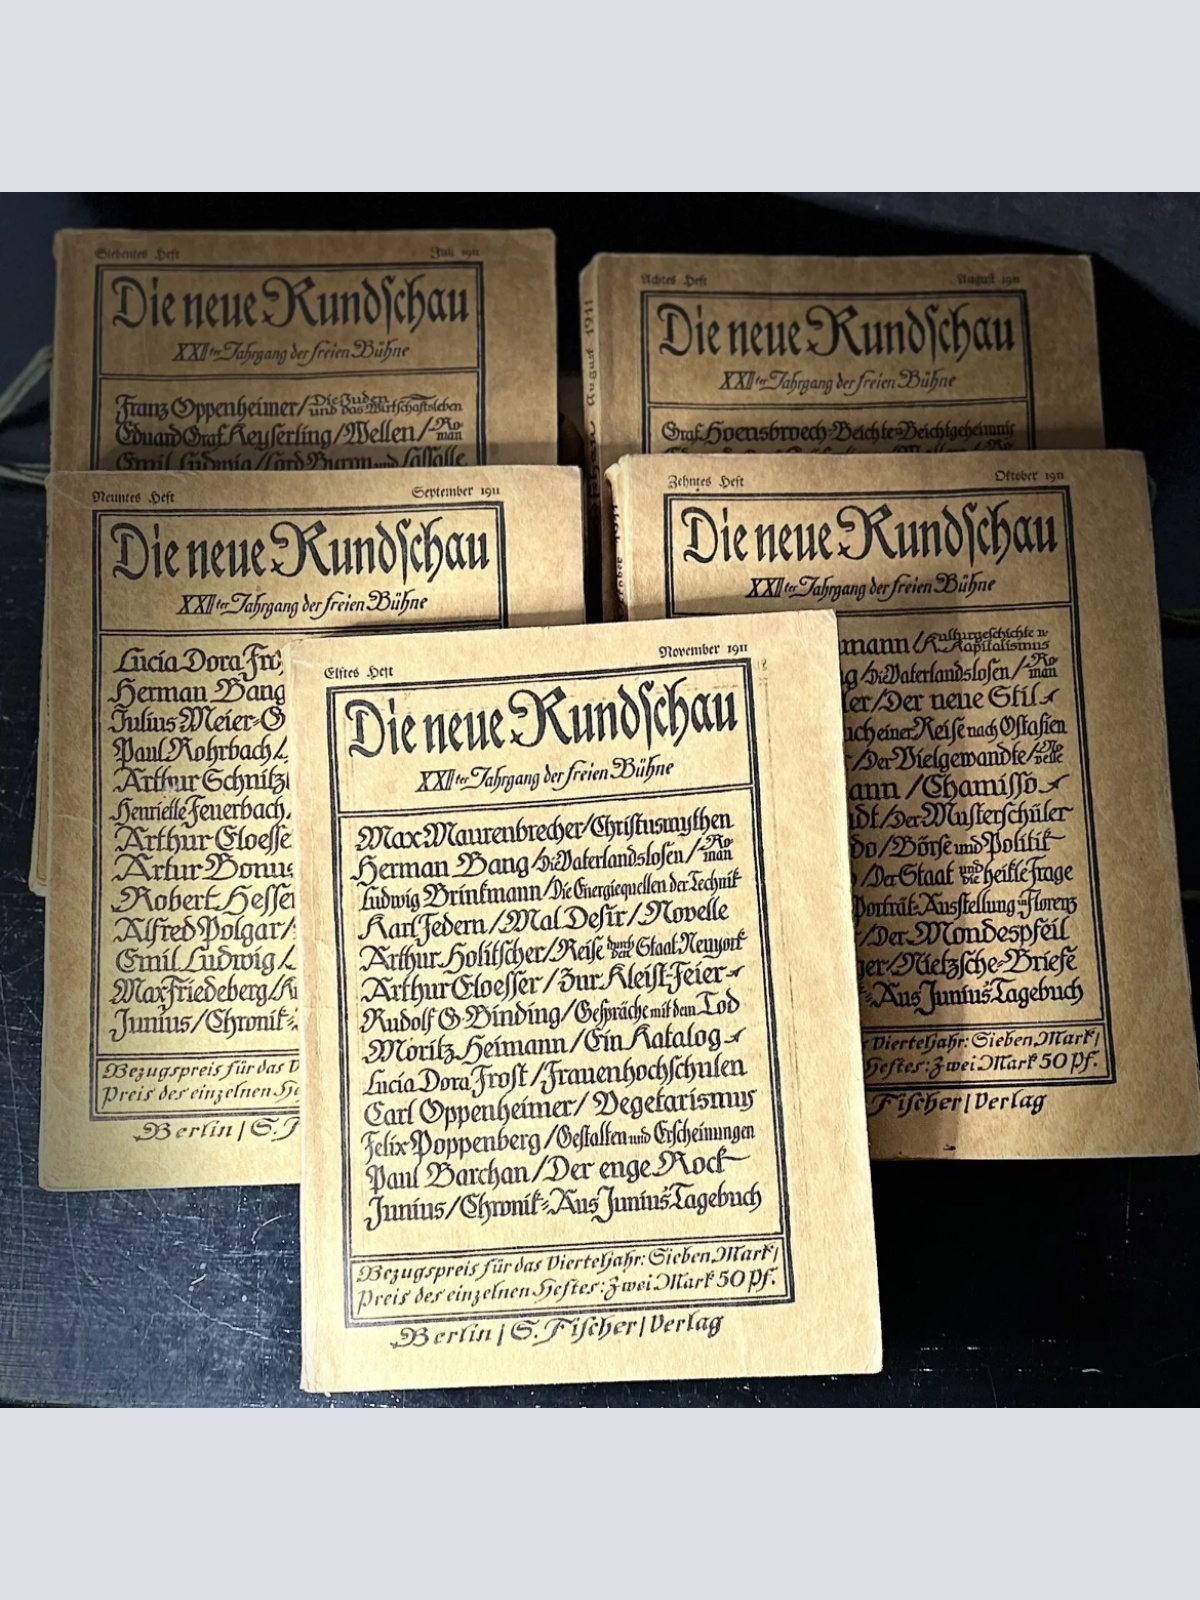 Siebentes Heft Juli 1911
Die neue Rundschau
XXIIter Jahrgang der freien Bühne
Franz Oppenheimer/Die Juden und das Wirtschaftsleben
Eduard Graf Keyserling/Wellen/Roman
Emil Ludwig/Lord Byron und Lassalle
Achtes Heft August 1911
Die neue Rundschau
XXIIter Jahrgang der freien Bühne
Graf Hoensbroech-Beichte-Beichtgeheimnis
August 1911
Neuntes Heft September 1911
Die neue Rundschau
XXIIter Jahrgang der freien Bühne
Lucia Dora Fro
Herman Bang
Julius Meier-G
Paul Rohrbach/
Arthur Schnitzl
Henriette Feuerbach
Arthur Eloesse
Artur Bonus
Robert Hessen
Alfred Polgar/
Emil Ludwig/
Max Friedeberg/
Junius/Chronik:
Bezugspreis für das V
Preis des einzelnen He
Berlin/S. F
Zehntes Heft Oktober 1911
Die neue Rundschau
XXIIter Jahrgang der freien Bühne
mann/Kulturgeschichte u. Kapitalismus
g/Die Vaterlandslosen/Roman
ler/Der neue Stil
uch einer Reise nach Ostasien
/Der Vielgewandte/Novelle
ann/Chamisso
dt/Der Musterschüler
do/Börse und Politik
/Der Staat und die heikle Frage
Porträt-Ausstellung in Florenz
/Der Mondespfeil
ger/Nietzsche-Briefe
Aus Junius' Tagebuch
r Vierteljahr: Sieben Mark/
Heftes: Zwei Mark 50 Pf.
Fischer/Verlag
Elftes Heft November 1911
Die neue Rundschau
XXIIter Jahrgang der freien Bühne
Max Maurenbrecher/Christusmythen
Herman Bang/Die Vaterlandslosen/Roman
Ludwig Brinkmann/Die Energiequellen der Technik
Karl Federn/Mal Desir/Novelle
Arthur Holitscher/Reise durch den Staat Neuyork
Arthur Eloesser/Zur Kleist-Feier
Rudolf G. Binding/Gespräche mit dem Tod
Moritz Heimann/Ein Katalog
Lucia Dora Frost/Frauenhochschulen
Carl Oppenheimer/Vegetarismus
Felix Poppenberg/Gestalten und Erscheinungen
Paul Barchan/Der enge Rock
Junius/Chronik: Aus Junius' Tagebuch
Bezugspreis für das Vierteljahr: Sieben Mark/
Preis des einzelnen Heftes: Zwei Mark 50 Pf.
Berlin/S. Fischer/Verlag